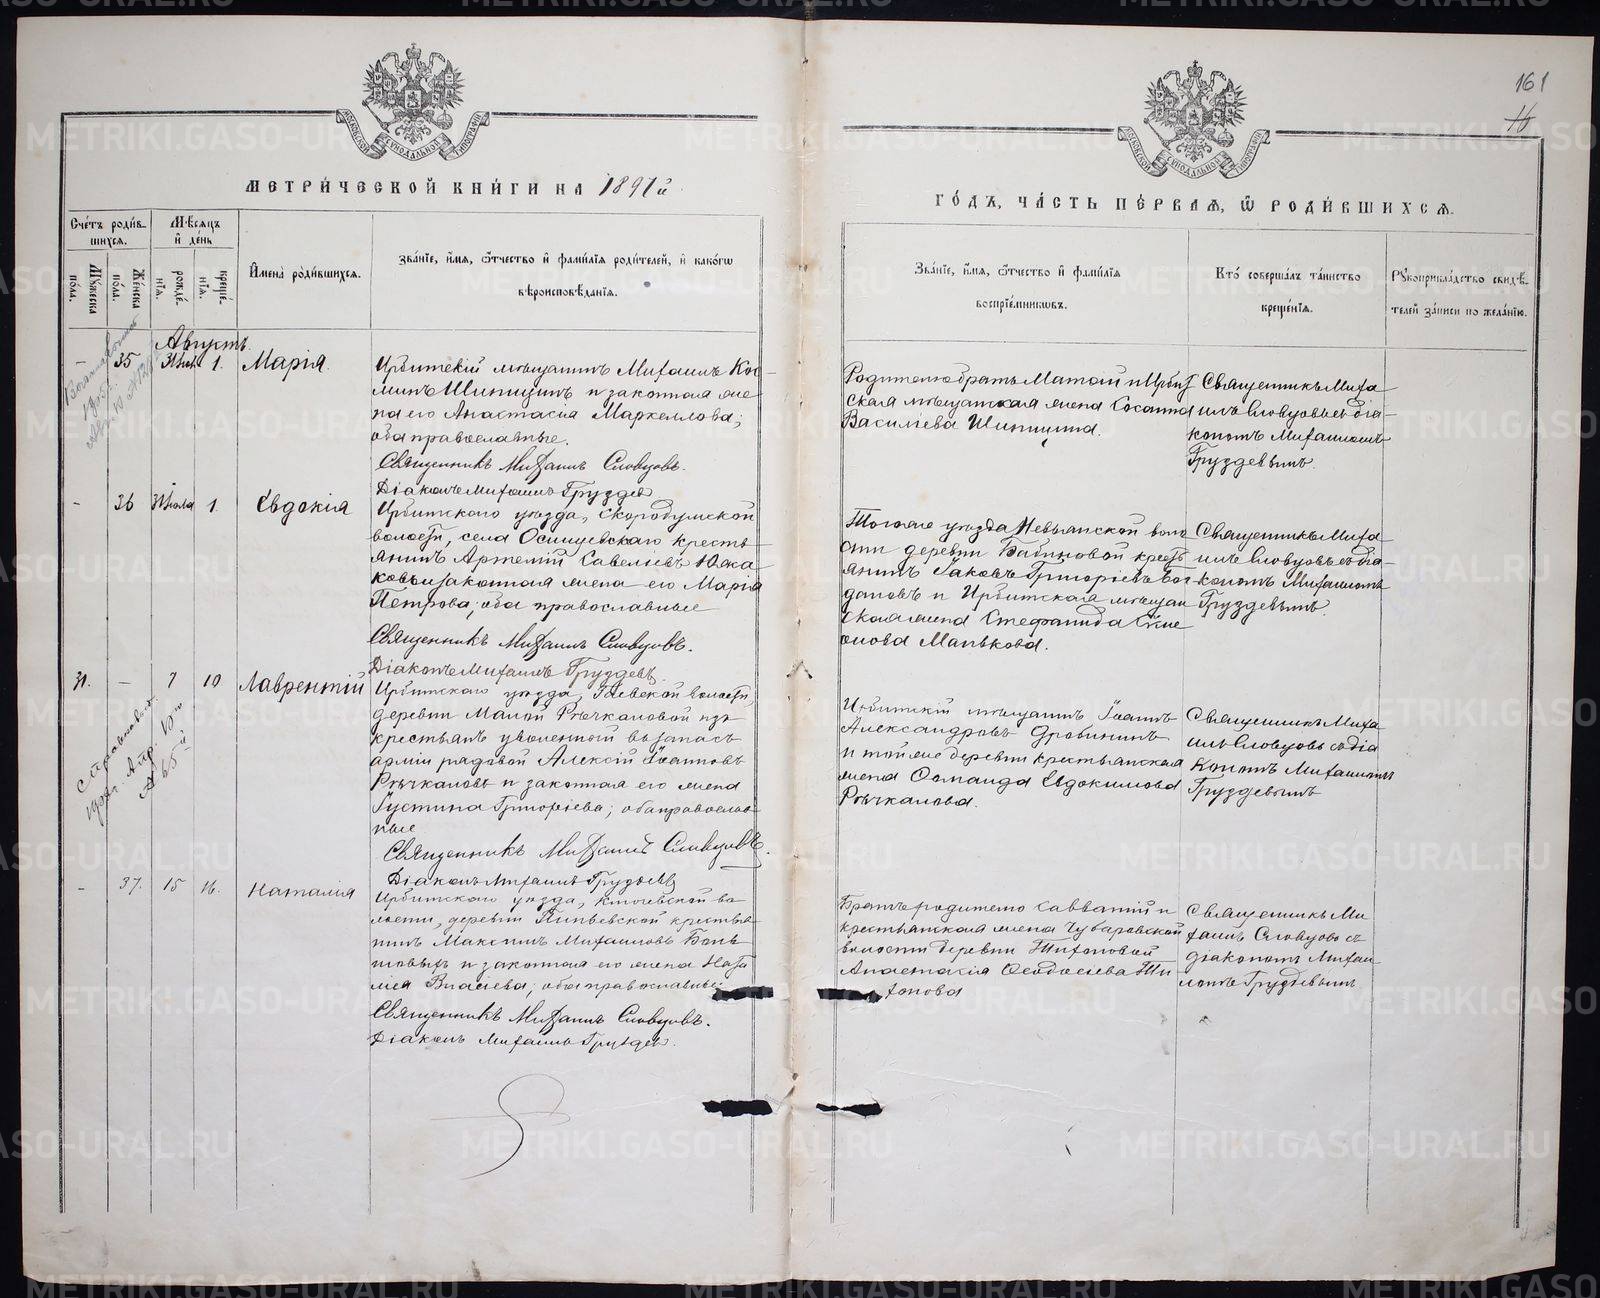 161
16
МОСКОВСКОЙ СУНОДАЛЬНОЙ ТИПОГРАФІИ
МОСКОВСКОЙ СУНОДАЛЬНОЙ ТИПОГРАФІИ
МЕТРИ́ЧЕСКОЙ КНИ́ГИ НА 1897 й
ГО́ДЪ, ЧА́СТЬ ПЕ́РВАЯ, Ѡ҆ РОДИ́ВШИХСЯ.
Сче́тъ роди́в-
шихся.
Мѣ́сяцъ
и҆ де́нь
Му́жеска
по́ла.
Же́нска
по́ла.
рожде́-
нїя.
креще́-
нїя.
И҆мена̀ роди́вшихся.
Зва́нїе, и҆́мя, ѻ҆́тчество и҆ фами́лїя роди́телей, и҆ како́гѡ
вѣроисповѣ́данїя.
Зва́нїе, и҆́мя, ѻ҆́тчество и҆ фами́лїя
воспрїе́мникѡвъ.
Кто̀ соверша́лъ та́инство
креще́нїя.
Рꙋкоприкла́дство свидѣ́-
телей за́писи по жела́нїю.
Августъ.
- 35 31 Іюл. 1. Марія.
Ирбитскій мѣщанинъ Михаилъ Кос-
минъ Шипицинъ и законная же-
на его Анастасія Маркеллова;
оба православные.
Священникъ Михаилъ Словцовъ.
Діаконъ Михаилъ Груздев
Родителю братъ Матѳій и Ирбит
ская мѣщанская жена Сосанна
Василіева Шипицина.
Священникъ Миха
илъ Словцовъ съ діа-
кономъ Михаиломъ
Груздевымъ.
- 36 31 Іюля 1 Евдокія
Ирбитскаго уѣзда, Скородумской
волости, села Осинцевскаго кресть
янинъ Артемій Савеліевъ Южа
ковъ и законная жена его Марія
Петрова; оба православные
Священникъ Михаилъ Словцовъ.
Діаконъ Михаилъ Груздевъ.
Тогоже уѣзда Невьянской воло
сти деревни Бабиновой кресть
янинъ Іаковъ Григоріевъ Бог
дановъ и Ирбитская мѣщан
ская жена Стефанида Симе
онова Манькова.
Священникъ Миха
илъ Словцовъ съ діа-
кономъ Михаиломъ
Груздевымъ.
31. - 7 10 Лаврентій
Ирбитскаго уѣзда, Гаевской волости,
деревни Малой Рѣчкаловой изъ
крестьянъ уволенный въ запасъ
арміи рядовой Алексій Іоанновъ
Рѣчкаловъ и законная его жена
Іустина Григоріева; оба православ
ные
Священникъ Михаилъ Словцовъ.
Діаконъ Михаилъ Груздевъ
Ирбитскій мѣщанинъ Іоаннъ
Александровъ Дровнинъ
и тойже деревни крестьянская
жена Соломанида Евдокимова
Рѣчкалова.
Священникъ Миха
илъ Словцовъ съ діа
кономъ Михаиломъ
Груздевымъ
- 37. 15 16. Наталія
Ирбитскаго уѣзда, Ключевской во
лости, деревни крестья
нинъ Максимъ Михаиловъ Бонь
шовыхъ и законная его жена Ната
лія Власіева; оба православные
Священникъ Михаилъ Словцовъ.
Діаконъ Михаилъ Груздев.
Братъ родителю Савватій и
крестьянская жена Чубаровской
волости деревни Тихоновой
Анастасія Ѳеодосіева Ти
хонова
Священникъ Ми
хаилъ Словцовъ съ
діакономъ Михаи
ломъ Груздевымъ
METRIKI.GASO-URAL.RU